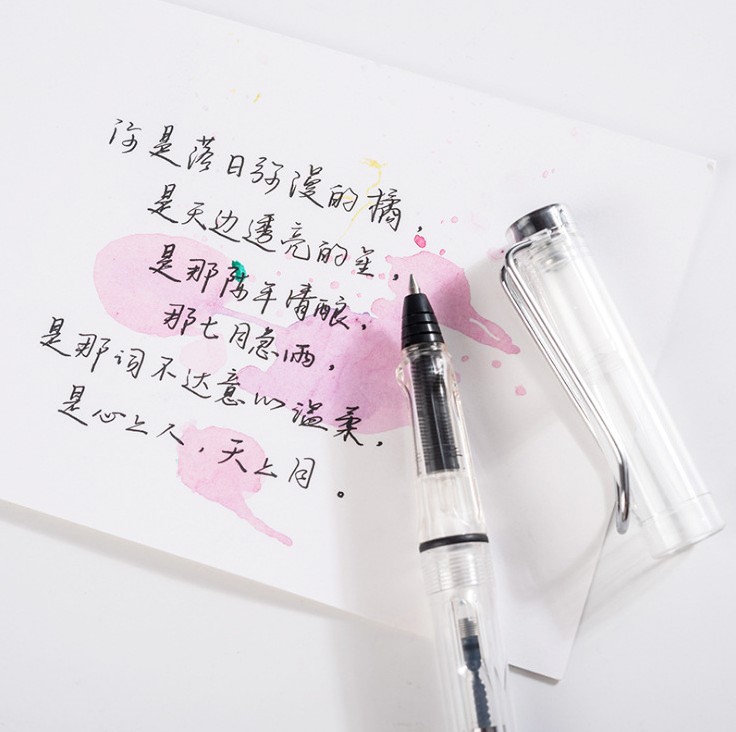 你是落日弥漫的橘，
是天边透亮的星，
是那陈年清酿，
那七月急雨，
是那词不达意的温柔，
是心上人，天上月。